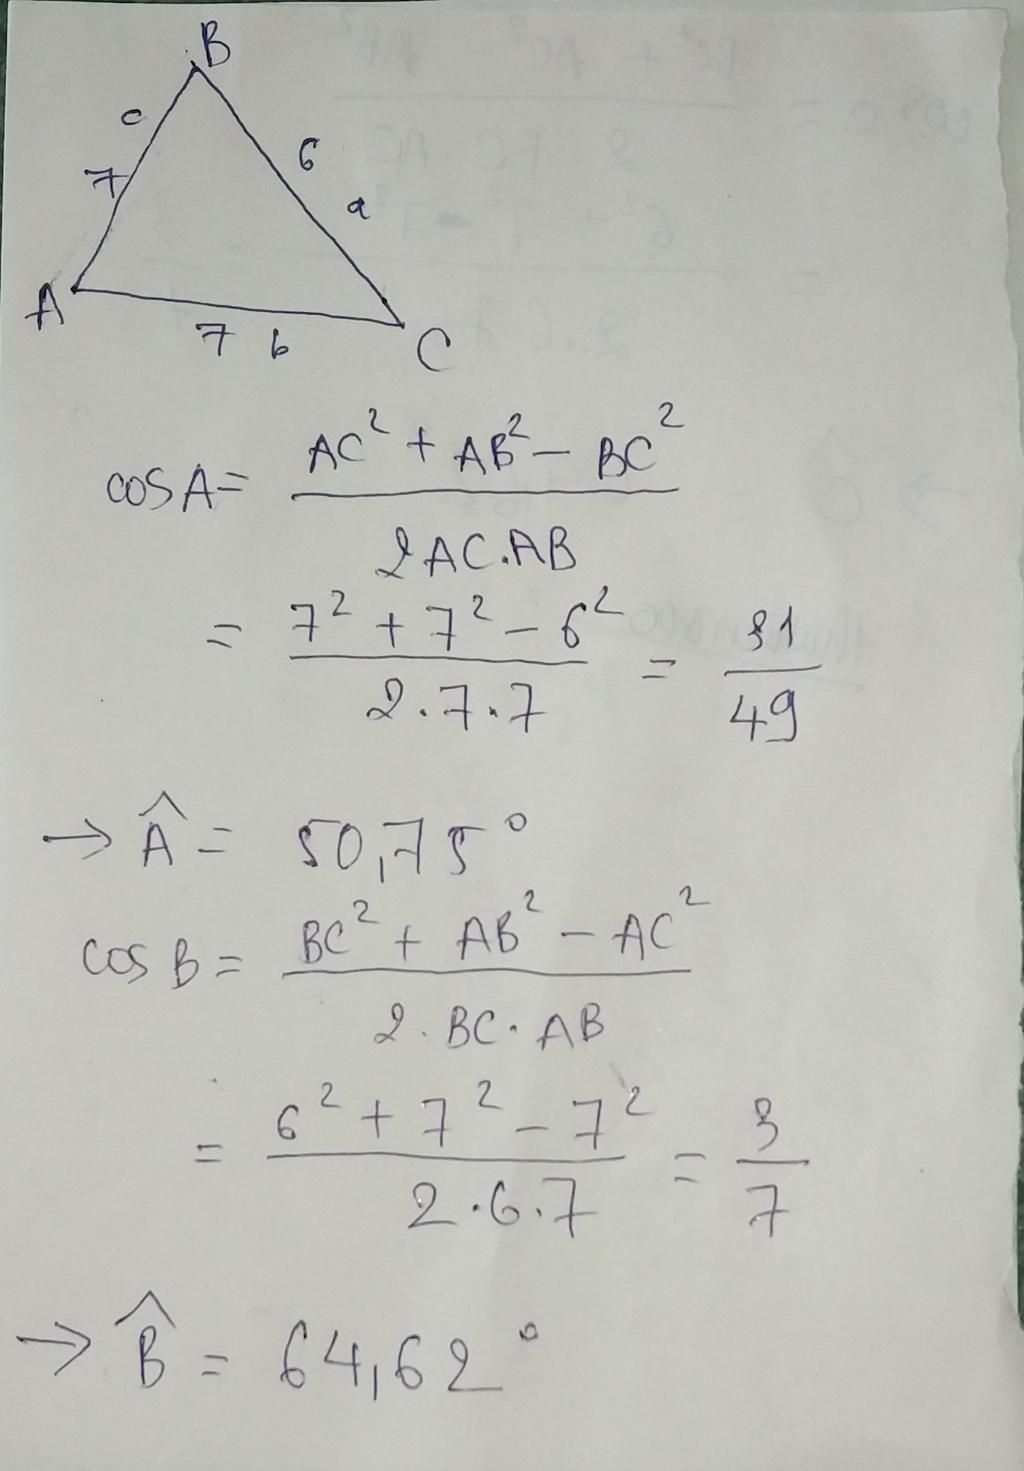 B
c
6
7
a
A
7 b
C
cos A = (AC² + AB² - BC²) / (2AC.AB)
= (7² + 7² - 6²) / (2.7.7) = 31/49
→ Â = 50,75°
cos B = (BC² + AB² - AC²) / (2.BC.AB)
= (6² + 7² - 7²) / (2.6.7) = 3/7
→ B̂ = 64,62°